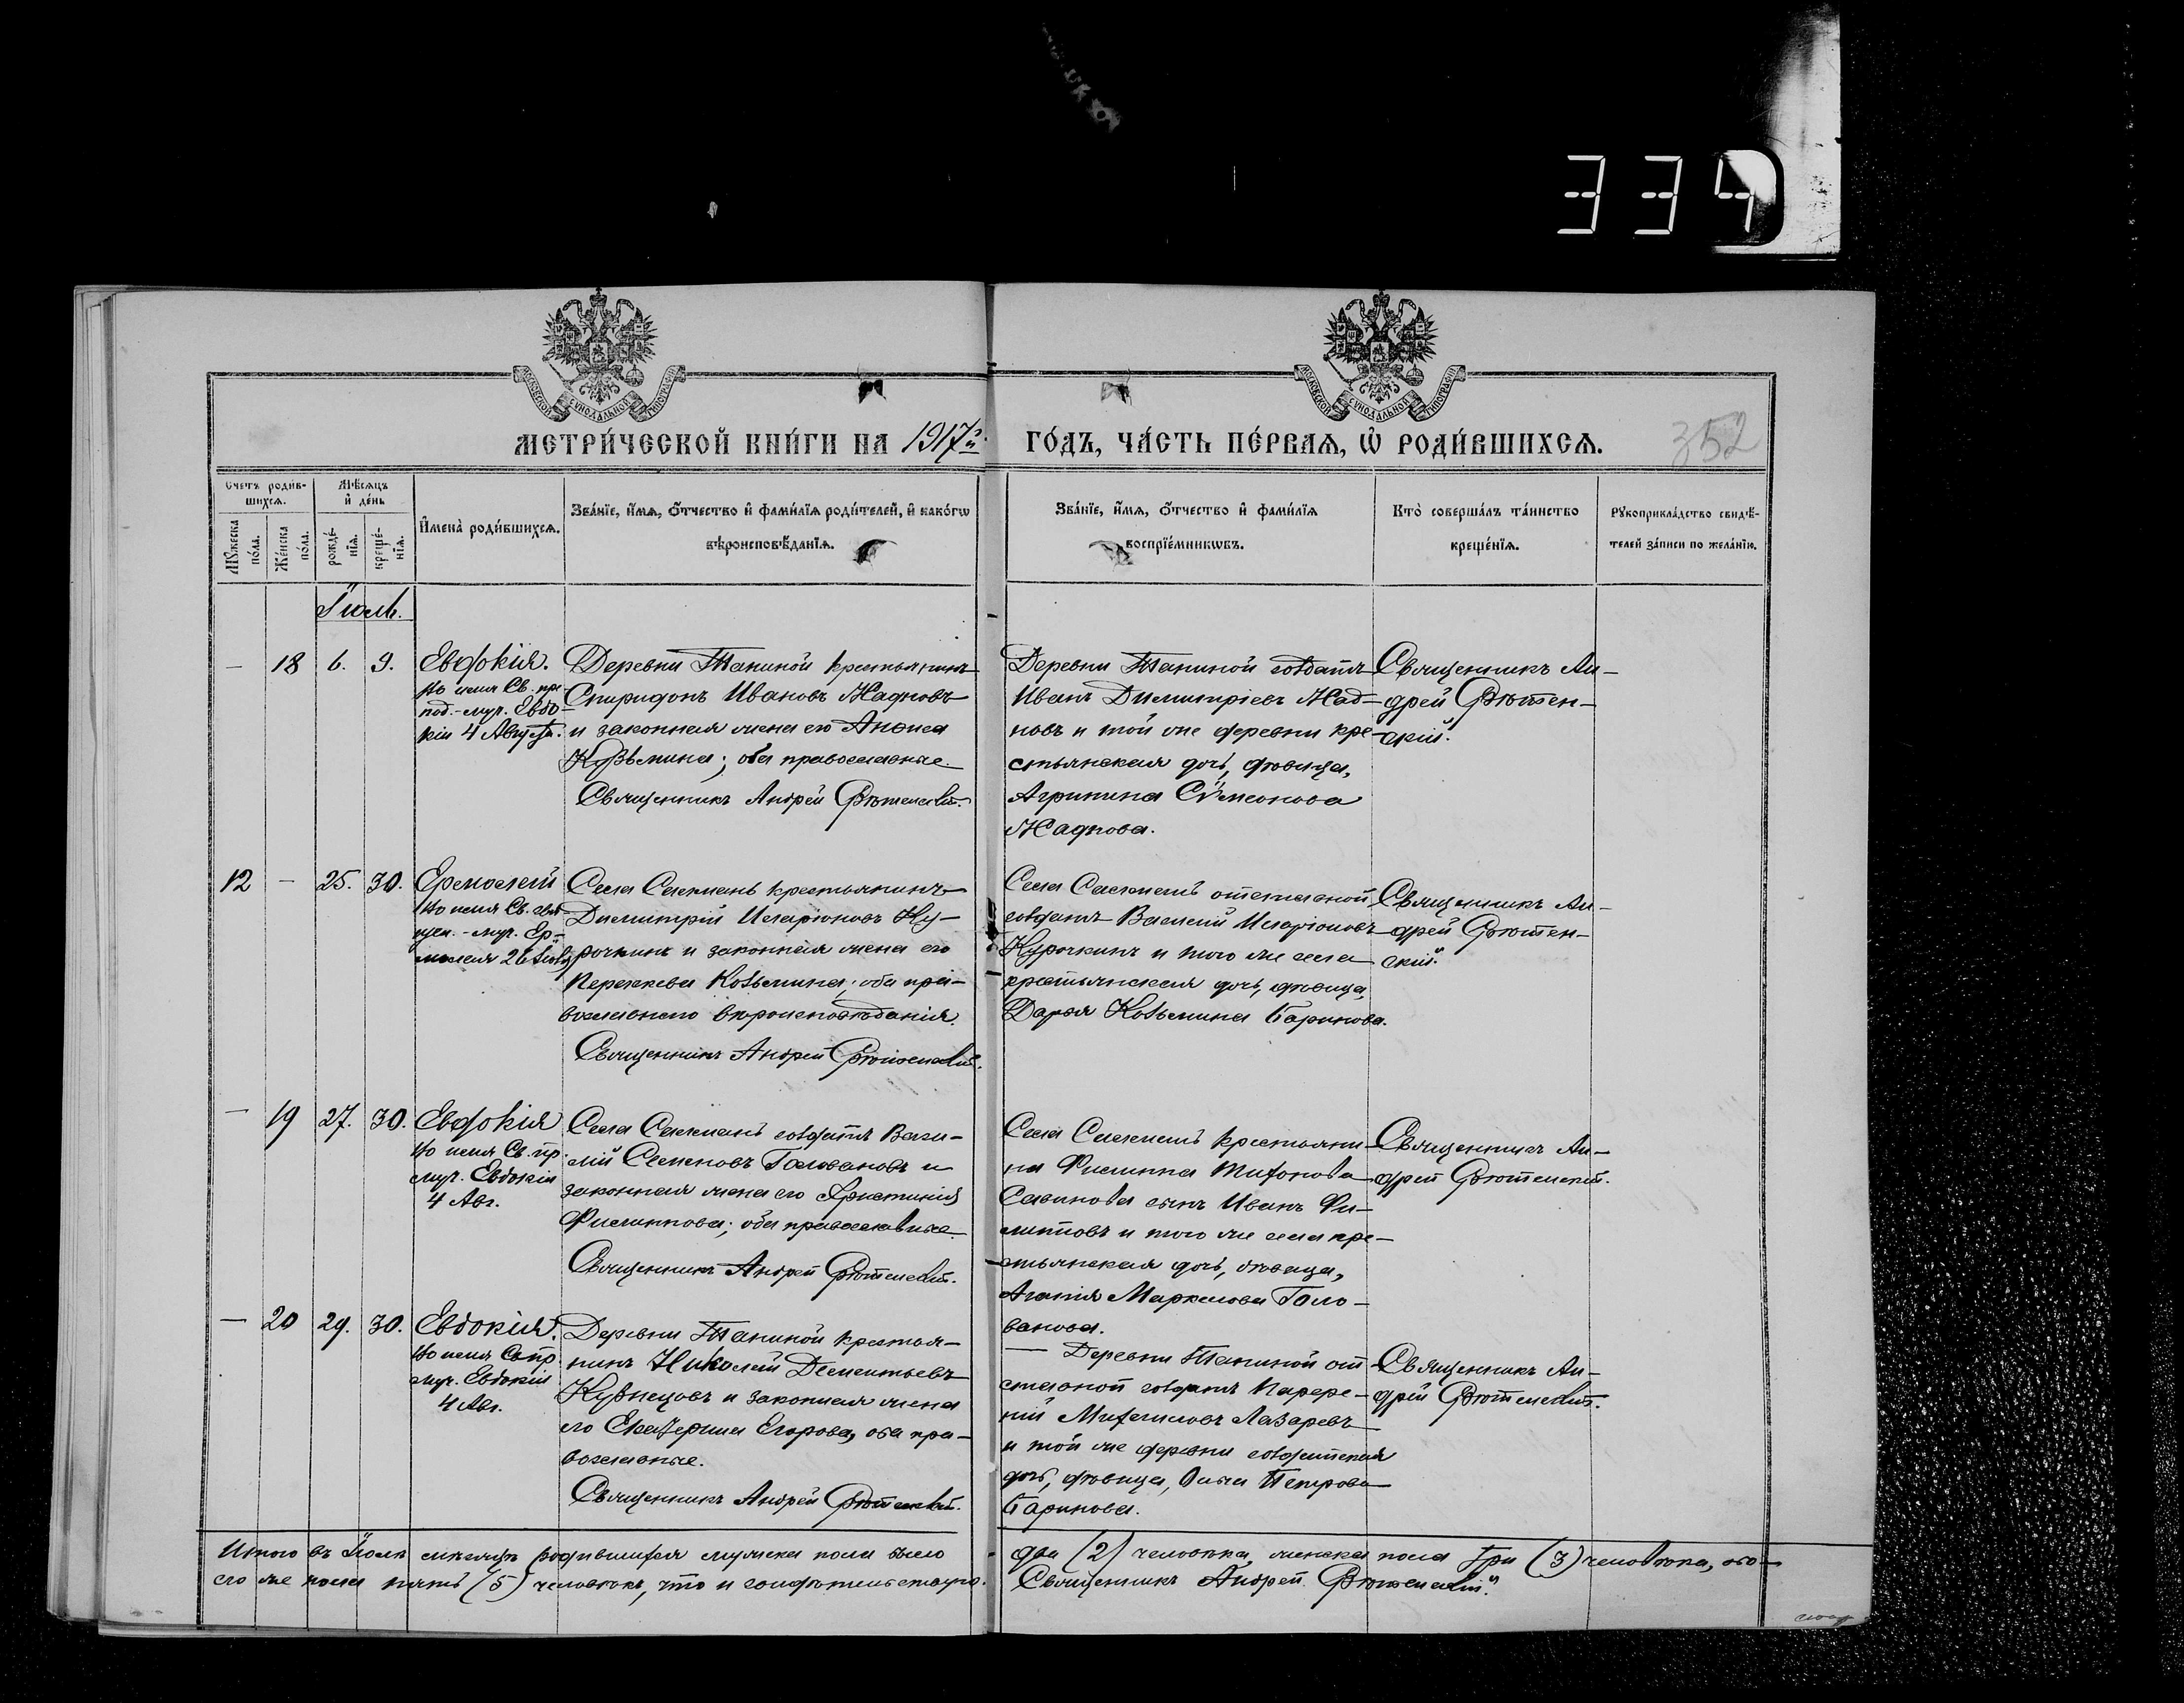 334
МОСКОВСКОЙ СѴНОДАЛЬНОЙ ТИПОГРАФІИ
МОСКОВСКОЙ СѴНОДАЛЬНОЙ ТИПОГРАФІИ
МЕТРИ́ЧЕСКОЙ КНИ́ГИ НА 1917й ГО́ДЪ, ЧА́СТЬ ПЕ́РВАѦ, Ѡ РОДИ́ВШИХСѦ.
352
Счетъ роди́в-
шихсѧ.
Мꙋжеска
по́ла.
Же́нска
по́ла.
Мѣ́сѧцъ
и҆ де́нь
рожде́-
нїѧ.
креще́-
нїѧ.
И҆мена̀ роди́вшихсѧ.
Зва́нїе, и҆́мѧ, ѻ҆́тчество и҆ фами́лїѧ роди́телей, и҆ како́гѡ
вѣроисповѣ́данїѧ.
Зва́нїе, и҆́мѧ, ѻ҆́тчество и҆ фами́лїѧ
воспрїе́мникѡвъ.
Кто̀ соверша́лъ та́инство
креще́нїѧ.
Рꙋкоприкла́дство свидѣ́-
телей за́писи по жела́нїю.
Іюль.
— 18 6. 9.
Евдокія.
Во имя Св. пре
под.-муч. Евдо-
кіи 4 Августа.
Деревни Тапиной крестьянинъ
Спиридонъ Ивановъ Жадновъ
и законная жена его Анриса
Козьмина; оба православные
Священникъ Андрей
Деревни Тапиной солдатъ
Иванъ Димитріевъ Жад-
новъ и той же деревни кре-
стьянская дочь, дѣвица,
Агрипина Сѵмеонова
Жаднова.
Священникъ Ан-
дрей
скій.
12 — 25. 30.
Ермолай
Во имя Св. свя
щен.-муч. Ер-
молая 26 Іюля
Села крестьянинъ
Димитрій Иларіоновъ Ку-
рочкинъ и законная жена его
Параскева Козьмина; оба пра-
вославнаго вѣроисповѣданія.
Священникъ Андрей
Села отставной
солдатъ Василій Иларіоновъ
Курочкинъ и того же села
крестьянская дочь, дѣвица,
Дарья Козьмина Баринова.
Священникъ Ан-
дрей
скій.
— 19 27. 30.
Евдокія
Во имя Св. пр.
муч. Евдокіи
4 Авг.
Села солдатъ Васи-
лій Семеновъ Головановъ и
законная жена его Христинія
Филиппова; оба православные
Священникъ Андрей
Села крестьяни-
на Филиппа Тихонова
Савинова сынъ Иванъ Фи-
липповъ и того же села кре-
стьянская дочь, дѣвица,
Агапія Маркелова Голо-
ванова.
Священникъ Ан-
дрей
— 20 29. 30.
Евдокія.
Во имя Св. пр.
муч. Евдокіи
4 Авг.
Деревни Тапиной крестья-
нинъ Николай Дементьевъ
Кузнецовъ и законная жена
его Екатерина Егорова, оба пра-
вославные.
Священникъ Андрей
— Деревни Тапиной от
ставной солдатъ
Михайловъ Лазаревъ
и той же деревни солдатская
дочь, дѣвица, Петрова
Баринова.
Священникъ Ан-
дрей
Итого въ Іюлѣ мѣсяцѣ родившихся мужска пола было
два (2) человѣка, женска пола три (3) человѣка, обо-
его же пола пять (5) человѣкъ, что и свидѣтельствую.
Священникъ Андрей